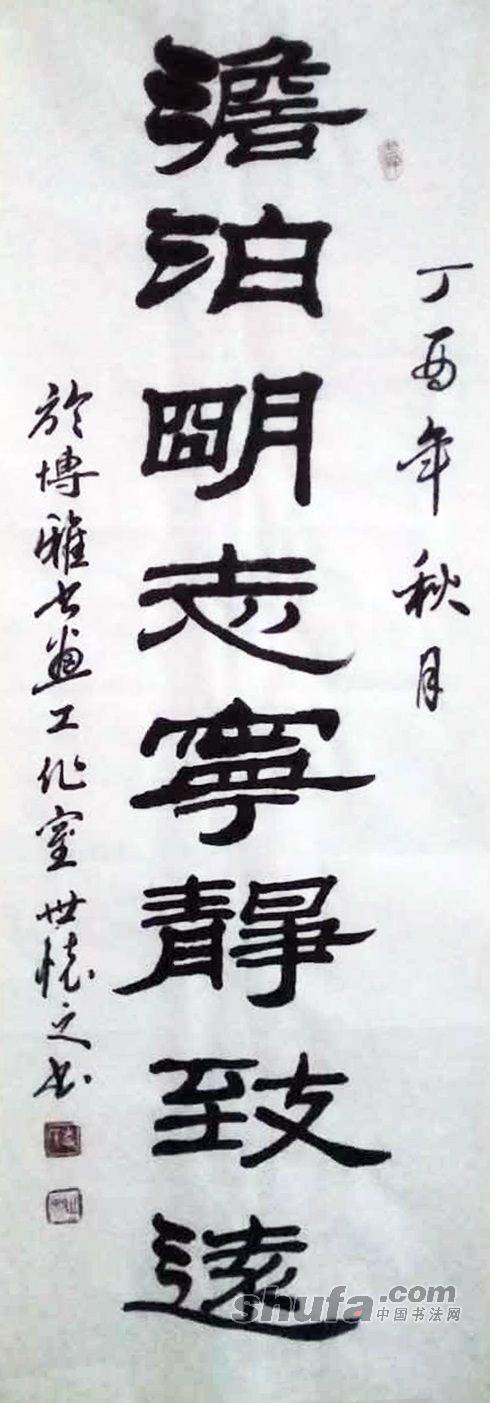 丁酉年秋月
澹泊明志寧靜致遠
於博雅书画工作室世怀之书
shufa.com
中国书法网